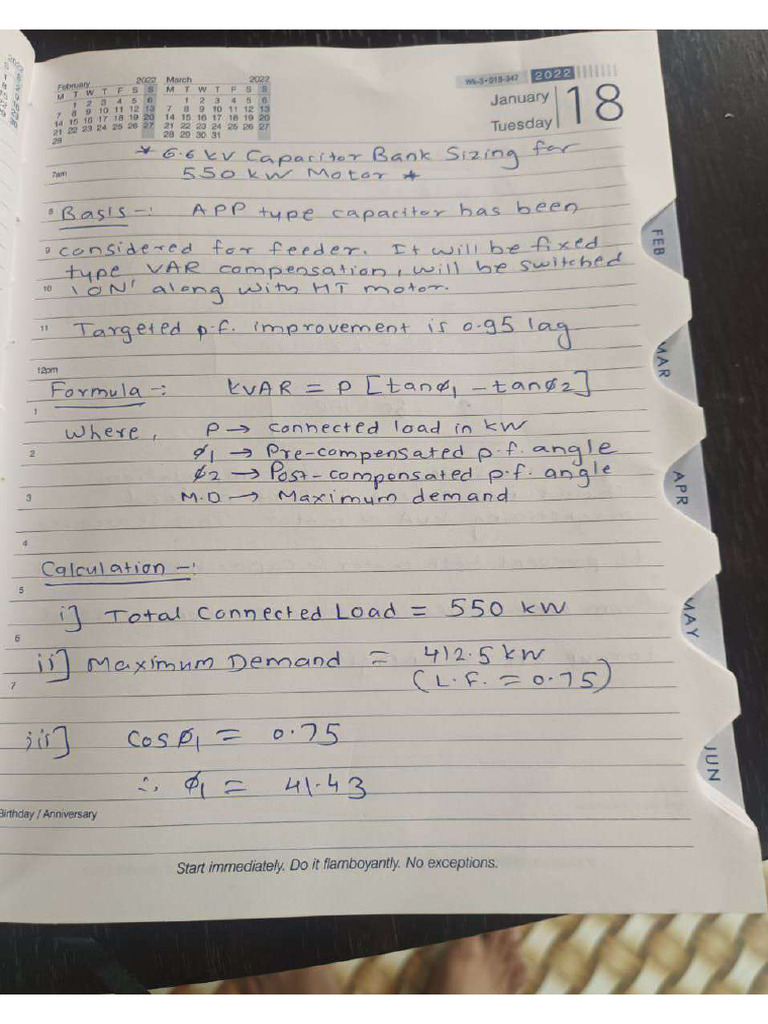 February 2022 March 2022
M T W T F S S M T W T F S S
1 2 3 4 5 6 1 2 3 4 5 6
7 8 9 10 11 12 13 7 8 9 10 11 12 13
14 15 16 17 18 19 20 14 15 16 17 18 19 20
21 22 23 24 25 26 27 21 22 23 24 25 26 27
28 28 29 30 31
Wk-3 • 018-347 2022
January 18
Tuesday
* 6.6 kV Capacitor Bank Sizing for
7am 550 kW Motor *
8 Basis -: APP type capacitor has been
9 considered for feeder. It will be fixed
type VAR compensation, will be switched
10 'ON' along with HT motor.
11 Targeted p.f. improvement is 0.95 lag
12pm
Formula -: kVAR = P [tanø1 - tanø2]
1
Where, P → connected load in kW
2 ø1 → Pre-compensated p.f. angle
ø2 → Post-compensated p.f. angle
3 M.D → Maximum demand
4
Calculation -:
5
i] Total Connected Load = 550 kW
6
ii] Maximum Demand = 412.5 kW
7 (L.F. = 0.75)
iii] Cosø1 = 0.75
∴ ø1 = 41.43
Birthday / Anniversary
Start immediately. Do it flamboyantly. No exceptions.
FEB
MAR
APR
MAY
JUN